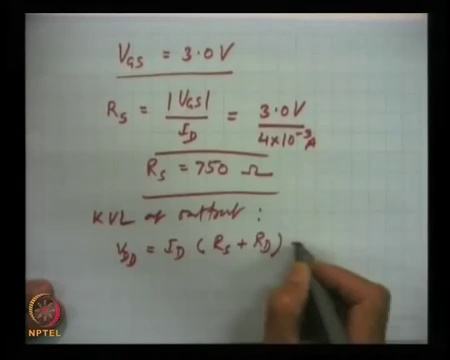 V_GS = 3.0 V
R_S = |V_GS| / I_D = 3.0 V / 4×10⁻³ A
R_S = 750 Ω
KVL at output :
V_DD = I_D ( R_S + R_D )
NPTEL